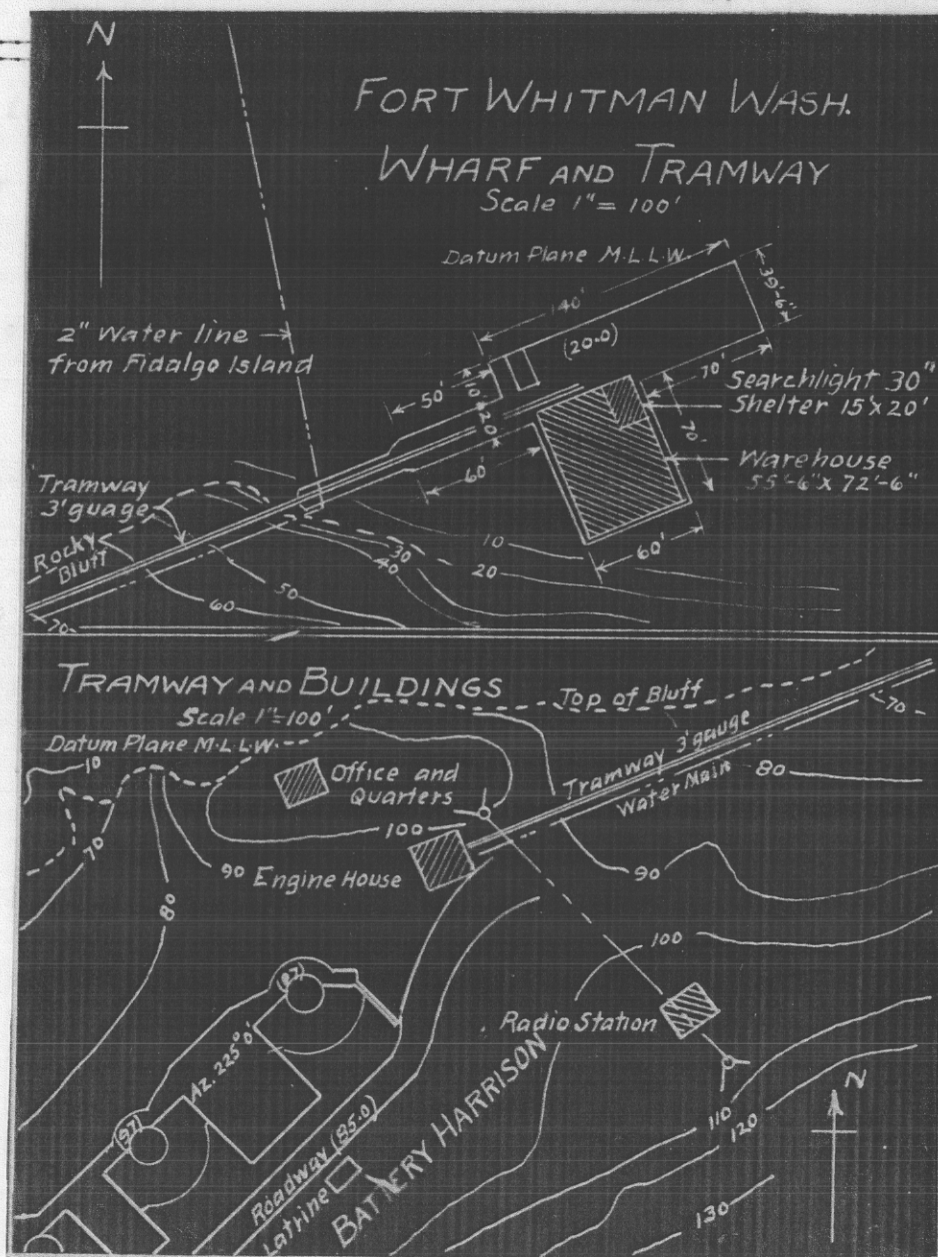 N
FORT WHITMAN WASH.
WHARF AND TRAMWAY
Scale 1" = 100'
Datum Plane M.L.L.W.
140'
39'-6"
(20.0)
2" Water line
from Fidalgo Island
50'
10'
20'
70'
Searchlight 30"
Shelter 15'x20'
70'
60'
Warehouse
55'-6" x 72'-6"
Tramway
3' guage
Rocky
Bluff
10
60'
30
40
20
50
60
70
TRAMWAY AND BUILDINGS
Scale 1"=100'
Datum Plane M.L.L.W.
Top of Bluff
70
Tramway 3' gauge
Water Main
80
10
Office and
Quarters
100
70
90
Engine House
90
80
100
(97)
Radio Station
Az. 225°0'
(97)
BATTERY HARRISON
Roadway (85.0)
Latrine
110
120
130
N